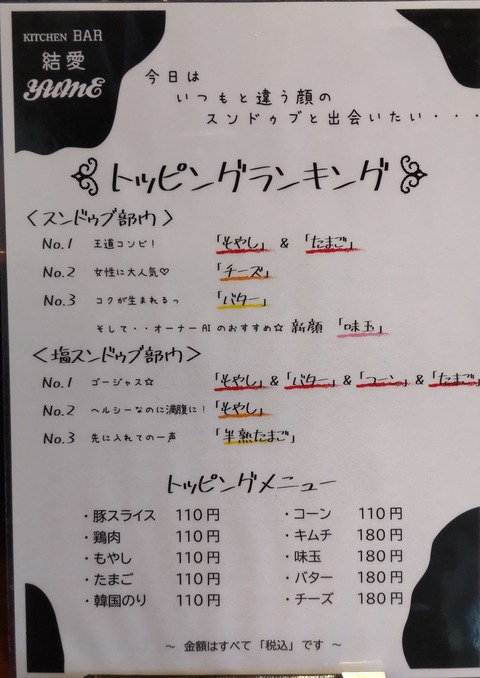 KITCHEN BAR
結愛
YUME
今日は
いつもと違う顔の
スンドゥブと出会いたい・・・
トッピングランキング
〈スンドゥブ部門〉
No.1 王道コンビ! 「もやし」 & 「たまご」
No.2 女性に大人気♡ 「チーズ」
No.3 コクが生まれるっ 「バター」
そして・・オーナーAIのおすすめ☆ 新顔 「味玉」
〈塩スンドゥブ部門〉
No.1 ゴージャス☆ 「もやし」&「バター」&「コーン」&「たまご」
No.2 ヘルシーなのに満腹に! 「もやし」
No.3 先に入れての一声 「半熟たまご」
トッピングメニュー
・豚スライス 110円 ・コーン 110円
・鶏肉 110円 ・キムチ 180円
・もやし 110円 ・味玉 180円
・たまご 110円 ・バター 180円
・韓国のり 110円 ・チーズ 180円
~ 金額はすべて「税込」です ~